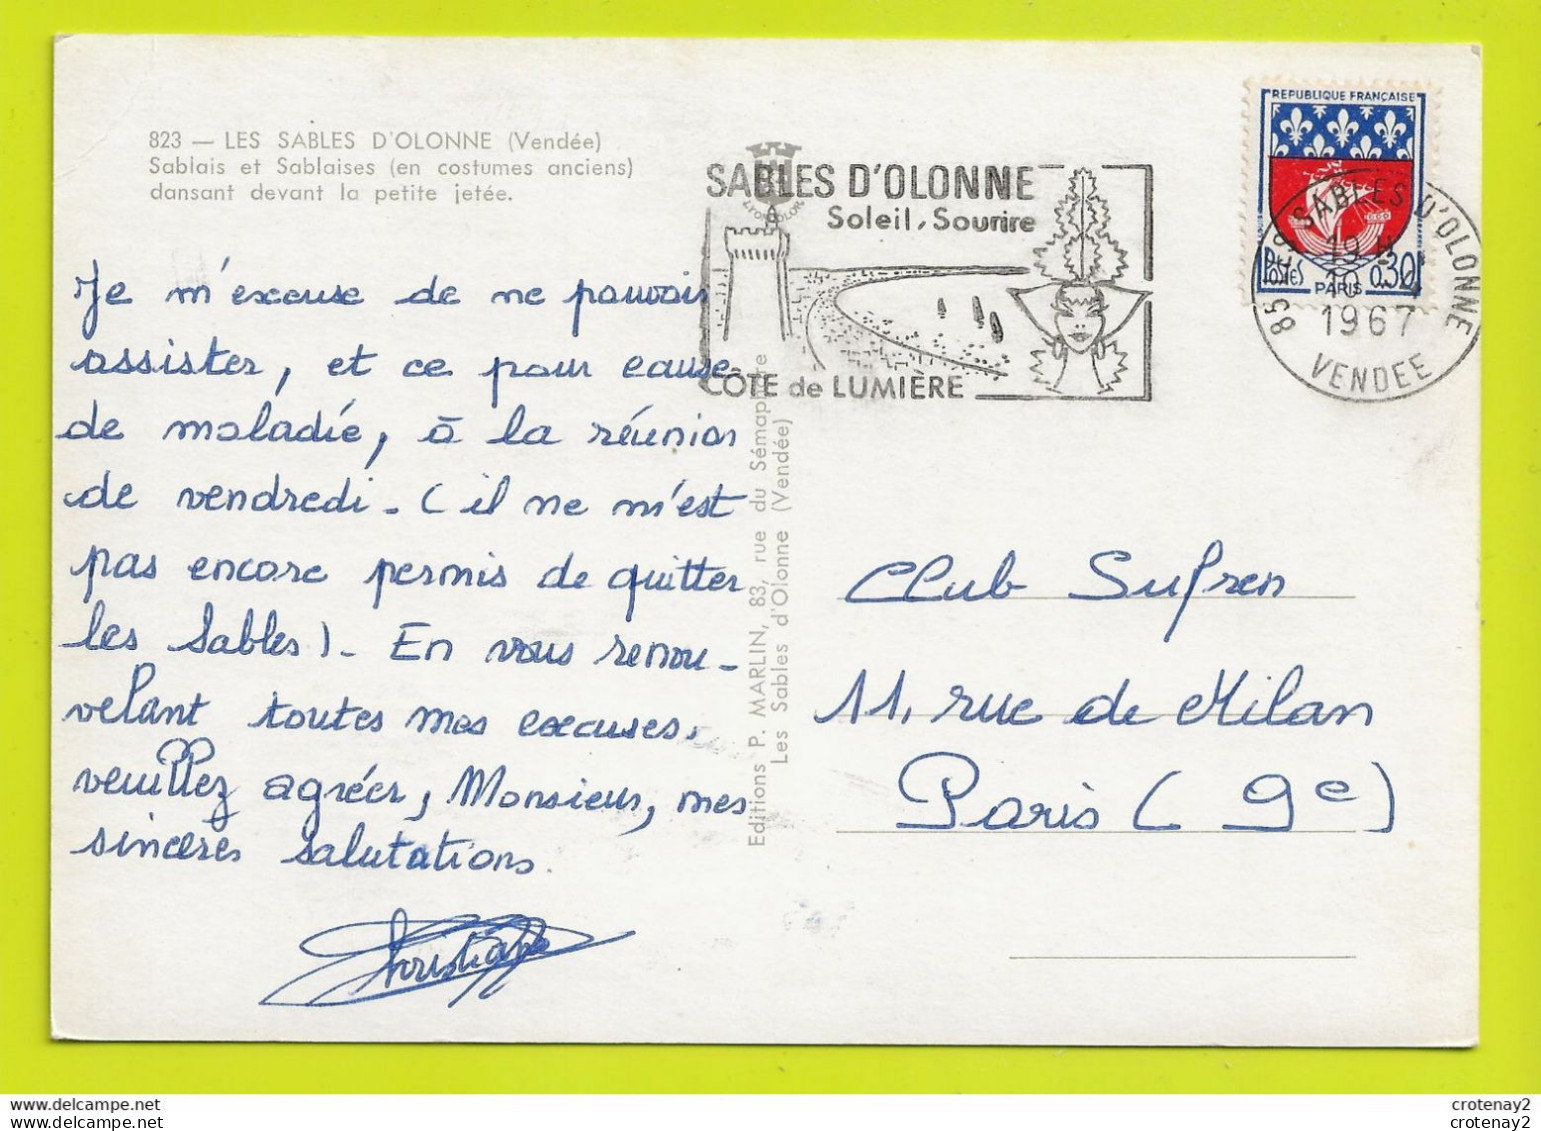 823 — LES SABLES D'OLONNE (Vendée)
Sablais et Sablaises (en costumes anciens)
dansant devant la petite jetée.
SABLES D'OLONNE
Soleil, Sourire
CÔTE de LUMIÈRE
REPUBLIQUE FRANÇAISE
POSTES
0.30
PARIS
85 LES SABLES D'OLONNE
19 H
10
1967
VENDEE
Je m'excuse de ne pouvoir
assister, et ce pour cause
de maladie, à la réunion
de vendredi - (il ne m'est
pas encore permis de quitter
les Sables) - En vous renou-
velant toutes mes excuses,
veuillez agréer, Monsieur, mes
sincères salutations.
Editions P. MARLIN, 83, rue du Sémaphore
Les Sables d'Olonne (Vendée)
Club Sufren
11, rue de Milan
Paris (9e)
crotenay2
crotenay2
crotenay2
crotenay2